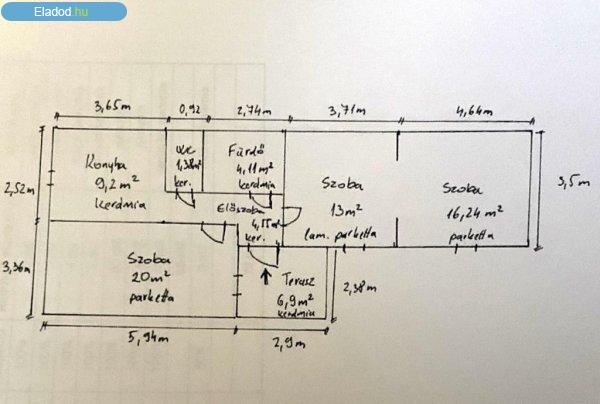 Eladod.hu
3,65m 0,92 2,74m 3,71m 4,64m
Konyha
9,2 m²
kerámia
WC
1,38m²
ker.
Fürdő
4,11 m²
kerámia
Előszoba
4,55m²
ker.
Szoba
13m²
lam. parketta
Szoba
16,24 m²
parketta
3,5m
2,52m
3,36m
Szoba
20m²
parketta
Terasz
6,9m²
kerámia
2,38m
5,94m
2,9m